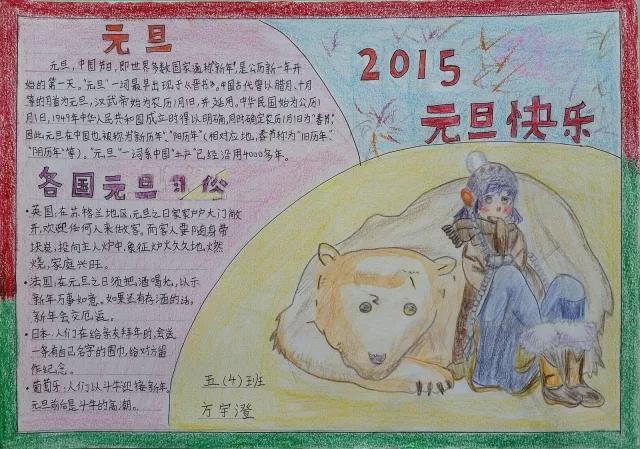 元旦
元旦，中国节日，即世界多数国家通称"新年"，是公历新一年开
始的第一天。"元旦"一词最早出现于《晋书》。中国古代曾以腊月、十月
等的月首为元旦，汉武帝始为农历1月1日，并延用。中华民国始为公历1
月1日，1949年中华人民共和国成立时得以明确，同时确定农历1月1日为"春节"，
因此元旦在中国也被称为"新历年"、"阳历年"（相对应地，春节称为"旧历年"、
"阴历年"等）。"元旦"一词系中国"土产"已经沿用4000多年。
2015
元旦快乐
各国元旦习俗
·英国：在苏格兰地区，元旦之日家家户户大门敞
开，欢迎任何人来做客。而客人要随身带
块炭，投向主人炉中，象征炉火久久地燃
烧，家庭兴旺。
·法国：在元旦之日须把酒喝光，以示
新年万事如意。如果还有存酒的话，
新年会交厄运。
·日本：人们在给亲友拜年时，会送
一条有自己名字的围巾，给对方留
作纪念。
·葡萄牙：人们以斗牛迎接新年，
元旦前后是斗牛的高潮。
五（4）班
方宇澄